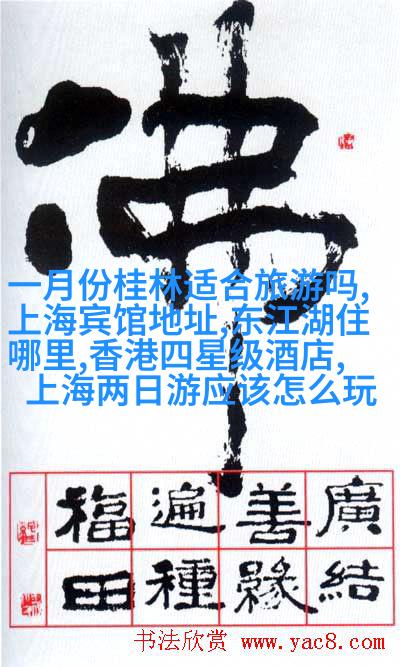 佛
一月份桂林适合旅游吗,
上海宾馆地址,东江湖住
哪里,香港四星级酒店,
上海两日游应该怎么玩
廣結
善緣
遍種
福田
书法欣赏 www.yac8.com